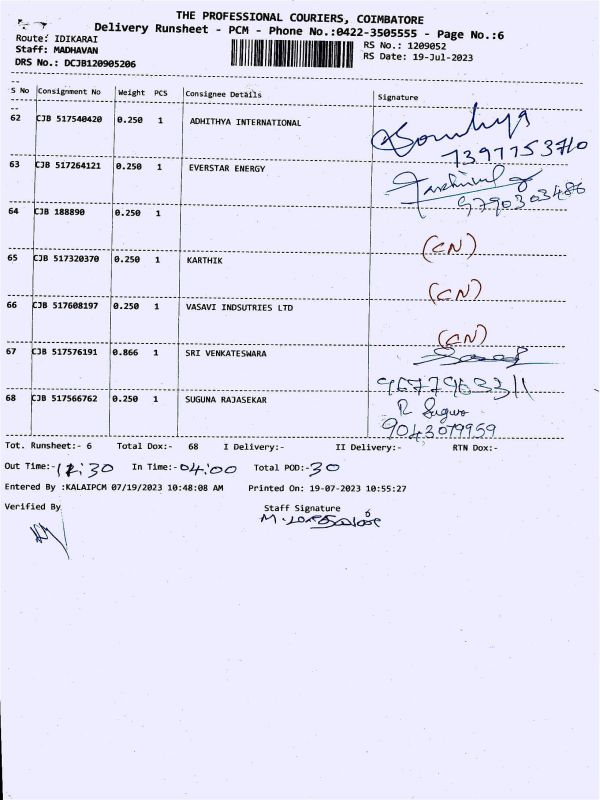 THE PROFESSIONAL COURIERS, COIMBATORE
Delivery Runsheet - PCM - Phone No.:0422-3505555 - Page No.:6
Route: IDIKARAI
RS No.: 1209052
Staff: MADHAVAN
RS Date: 19-Jul-2023
DRS No.: DCJB120905206
S No Consignment No Weight PCS Consignee Details Signature
62 CJB 517540420 0.250 1 ADHITHYA INTERNATIONAL
7397753710
63 CJB 517264121 0.250 1 EVERSTAR ENERGY
9790303486
64 CJB 188890 0.250 1 (CN)
65 CJB 517320370 0.250 1 KARTHIK (CN)
66 CJB 517608197 0.250 1 VASAVI INDSUTRIES LTD (CN)
67 CJB 517576191 0.866 1 SRI VENKATESWARA
9677963311
68 CJB 517566762 0.250 1 SUGUNA RAJASEKAR R
9043079959
Tot. Runsheet:- 6 Total Dox:- 68 I Delivery:- II Delivery:- RTN Dox:-
Out Time:- 12:30 In Time:- 04:00 Total POD:- 30
Entered By :KALAIPCM 07/19/2023 10:48:08 AM Printed On: 19-07-2023 10:55:27
Verified By Staff Signature